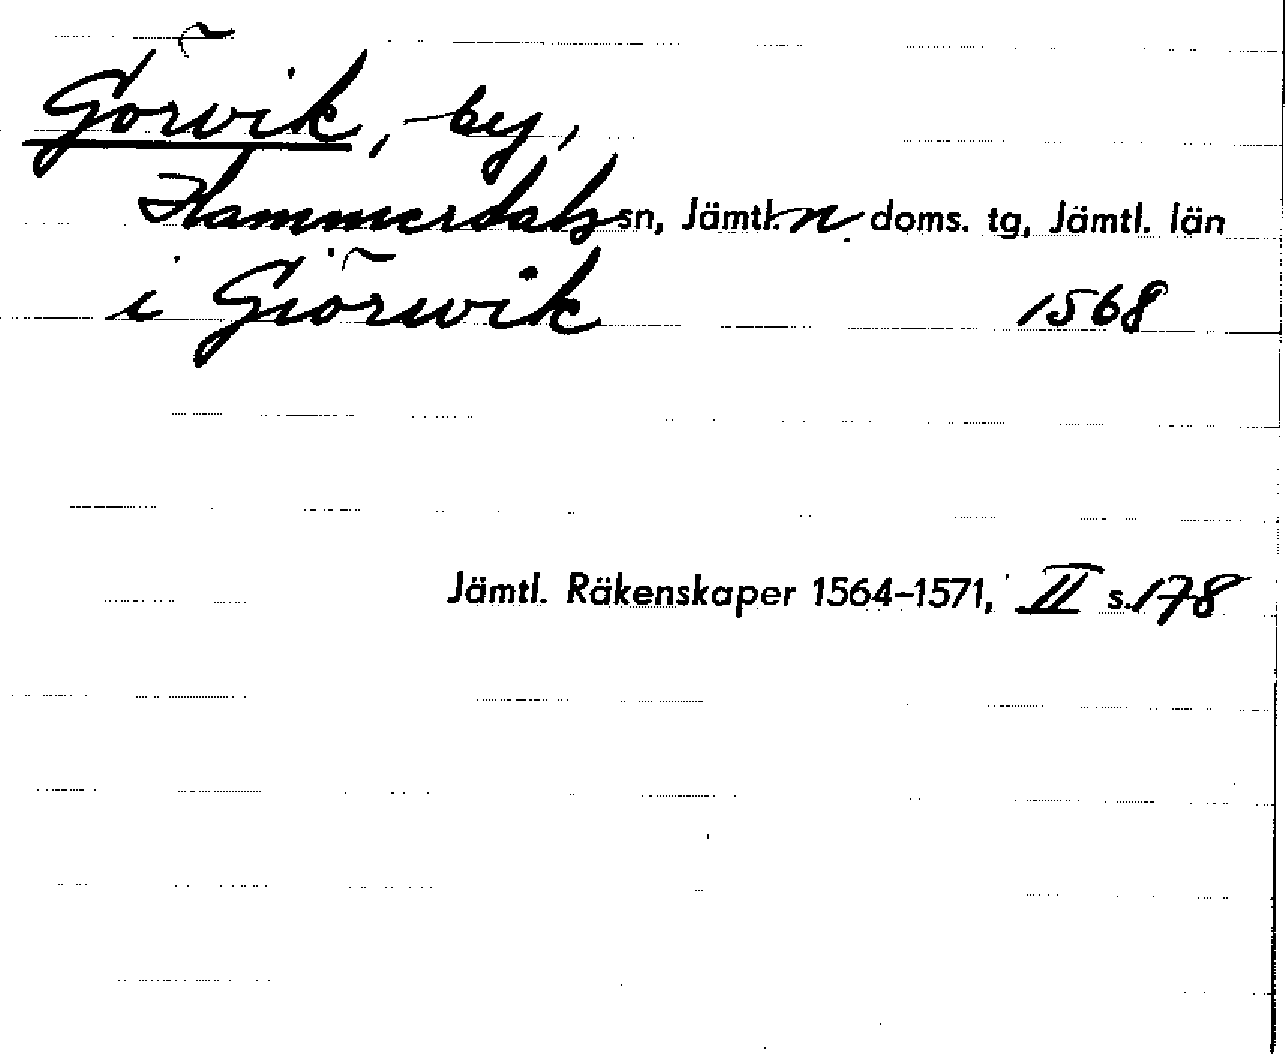 Görvik, by,
Hammerdals sn, Jämtl. n. doms. tg, Jämtl. län
i Giörwik 1568
Jämtl. Räkenskaper 1564–1571, II s. 178